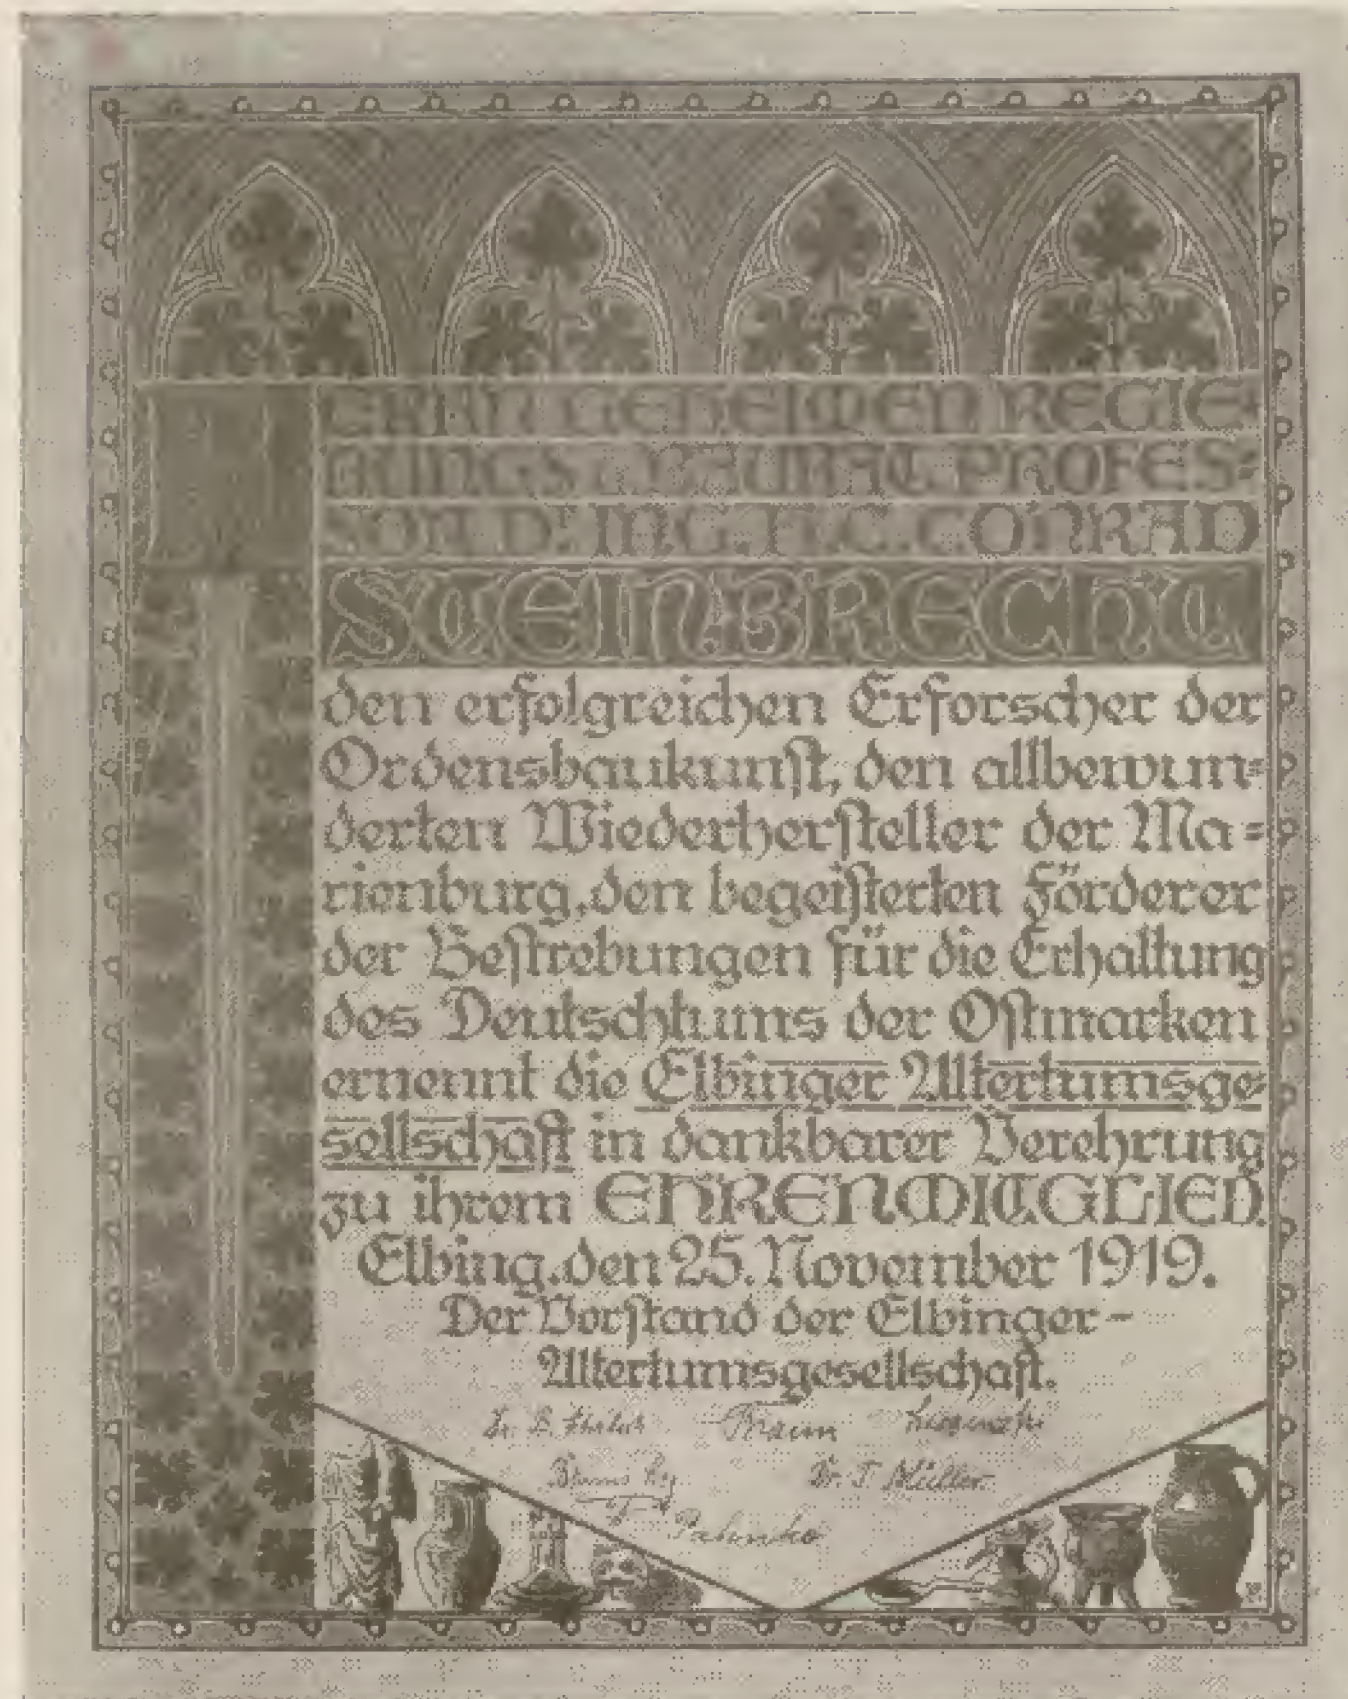 HERRN GEHEIMEN REGIE-
RUNGS & BAURAT PROFES-
SOR Dr. ING. H.C. CONRAD
STEINBRECHT
den erfolgreichen Erforscher der
Ordensbaukunst, den allbewun-
derten Wiederhersteller der Ma-
rienburg, den begeisterten Förderer
der Bestrebungen für die Erhaltung
des Deutschtums der Ostmarken
ernennt die Elbinger Altertumsge-
sellschaft in dankbarer Verehrung
zu ihrem EHRENMITGLIED.
Elbing, den 25. November 1919.
Der Vorstand der Elbinger-
Altertumsgesellschaft.
Braun
Dr. T. Müller